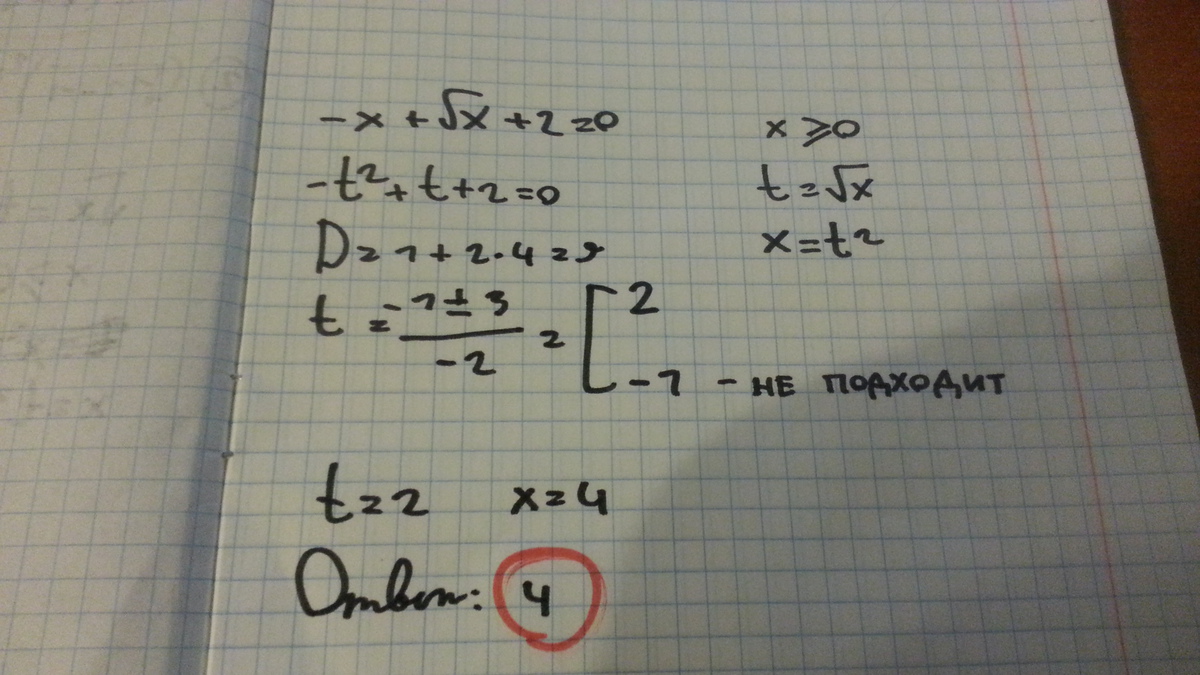 -x + √x + 2 = 0    x ⩾ 0
-t² + t + 2 = 0    t = √x
D = 1 + 2·4 = 9    x = t²
t = (-1 ± 3)/(-2) = [ 2
-1 - НЕ ПОДХОДИТ
t = 2    x = 4
Ответ: 4